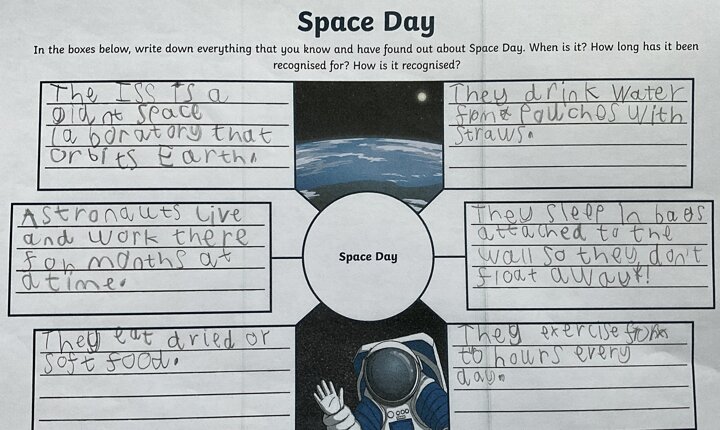 Space Day
In the boxes below, write down everything that you know and have found out about Space Day. When is it? How long has it been
recognised for? How is it recognised?
The ISS is a
giant space
laboratory that
orbits Earth.
They drink water
from pouches with
straws.
Astronauts live
and work there
for months at
a time.
Space Day
They sleep in bags
attached to the
wall so they don't
float away!
They eat dried or
soft food.
They exercise for
to hours every
day.